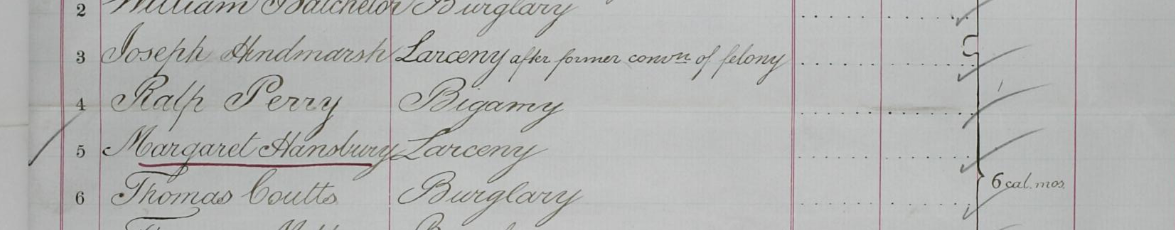 2 William Batchelor Burglary
3 Joseph Hindmarsh Larceny after former convn of felony
4 Ralph Perry Bigamy
5 Margaret Hansbury Larceny
6 Thomas Coutts Burglary 6 cal. mos